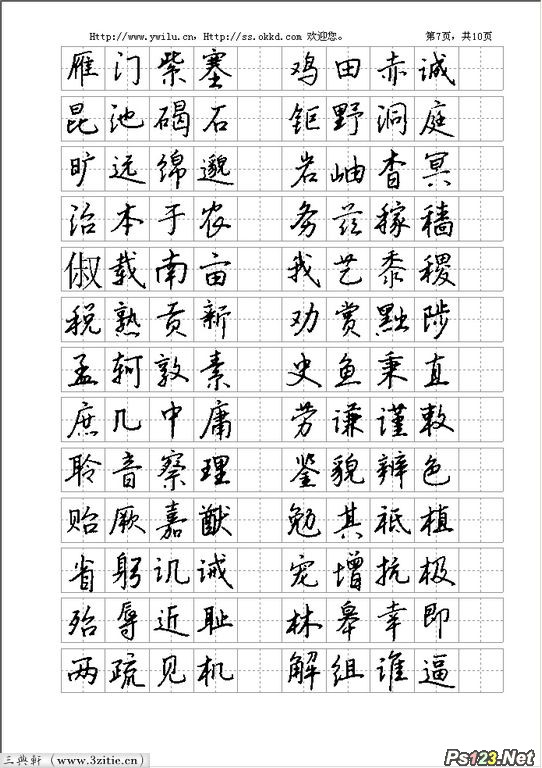 Http://www.ywilu.cn, Http://ss.okkd.com 欢迎您。 第7页，共10页
雁门紫塞 鸡田赤诚
昆池碣石 钜野洞庭
旷远绵邈 岩岫杳冥
治本于农 务兹稼穑
俶载南亩 我艺黍稷
税熟贡新 劝赏黜陟
孟轲敦素 史鱼秉直
庶几中庸 劳谦谨敕
聆音察理 鉴貌辨色
贻厥嘉猷 勉其祗植
省躬讥诫 宠增抗极
殆辱近耻 林皋幸即
两疏见机 解组谁逼
三典轩 (www.3zitie.cn)
Ps123.Net